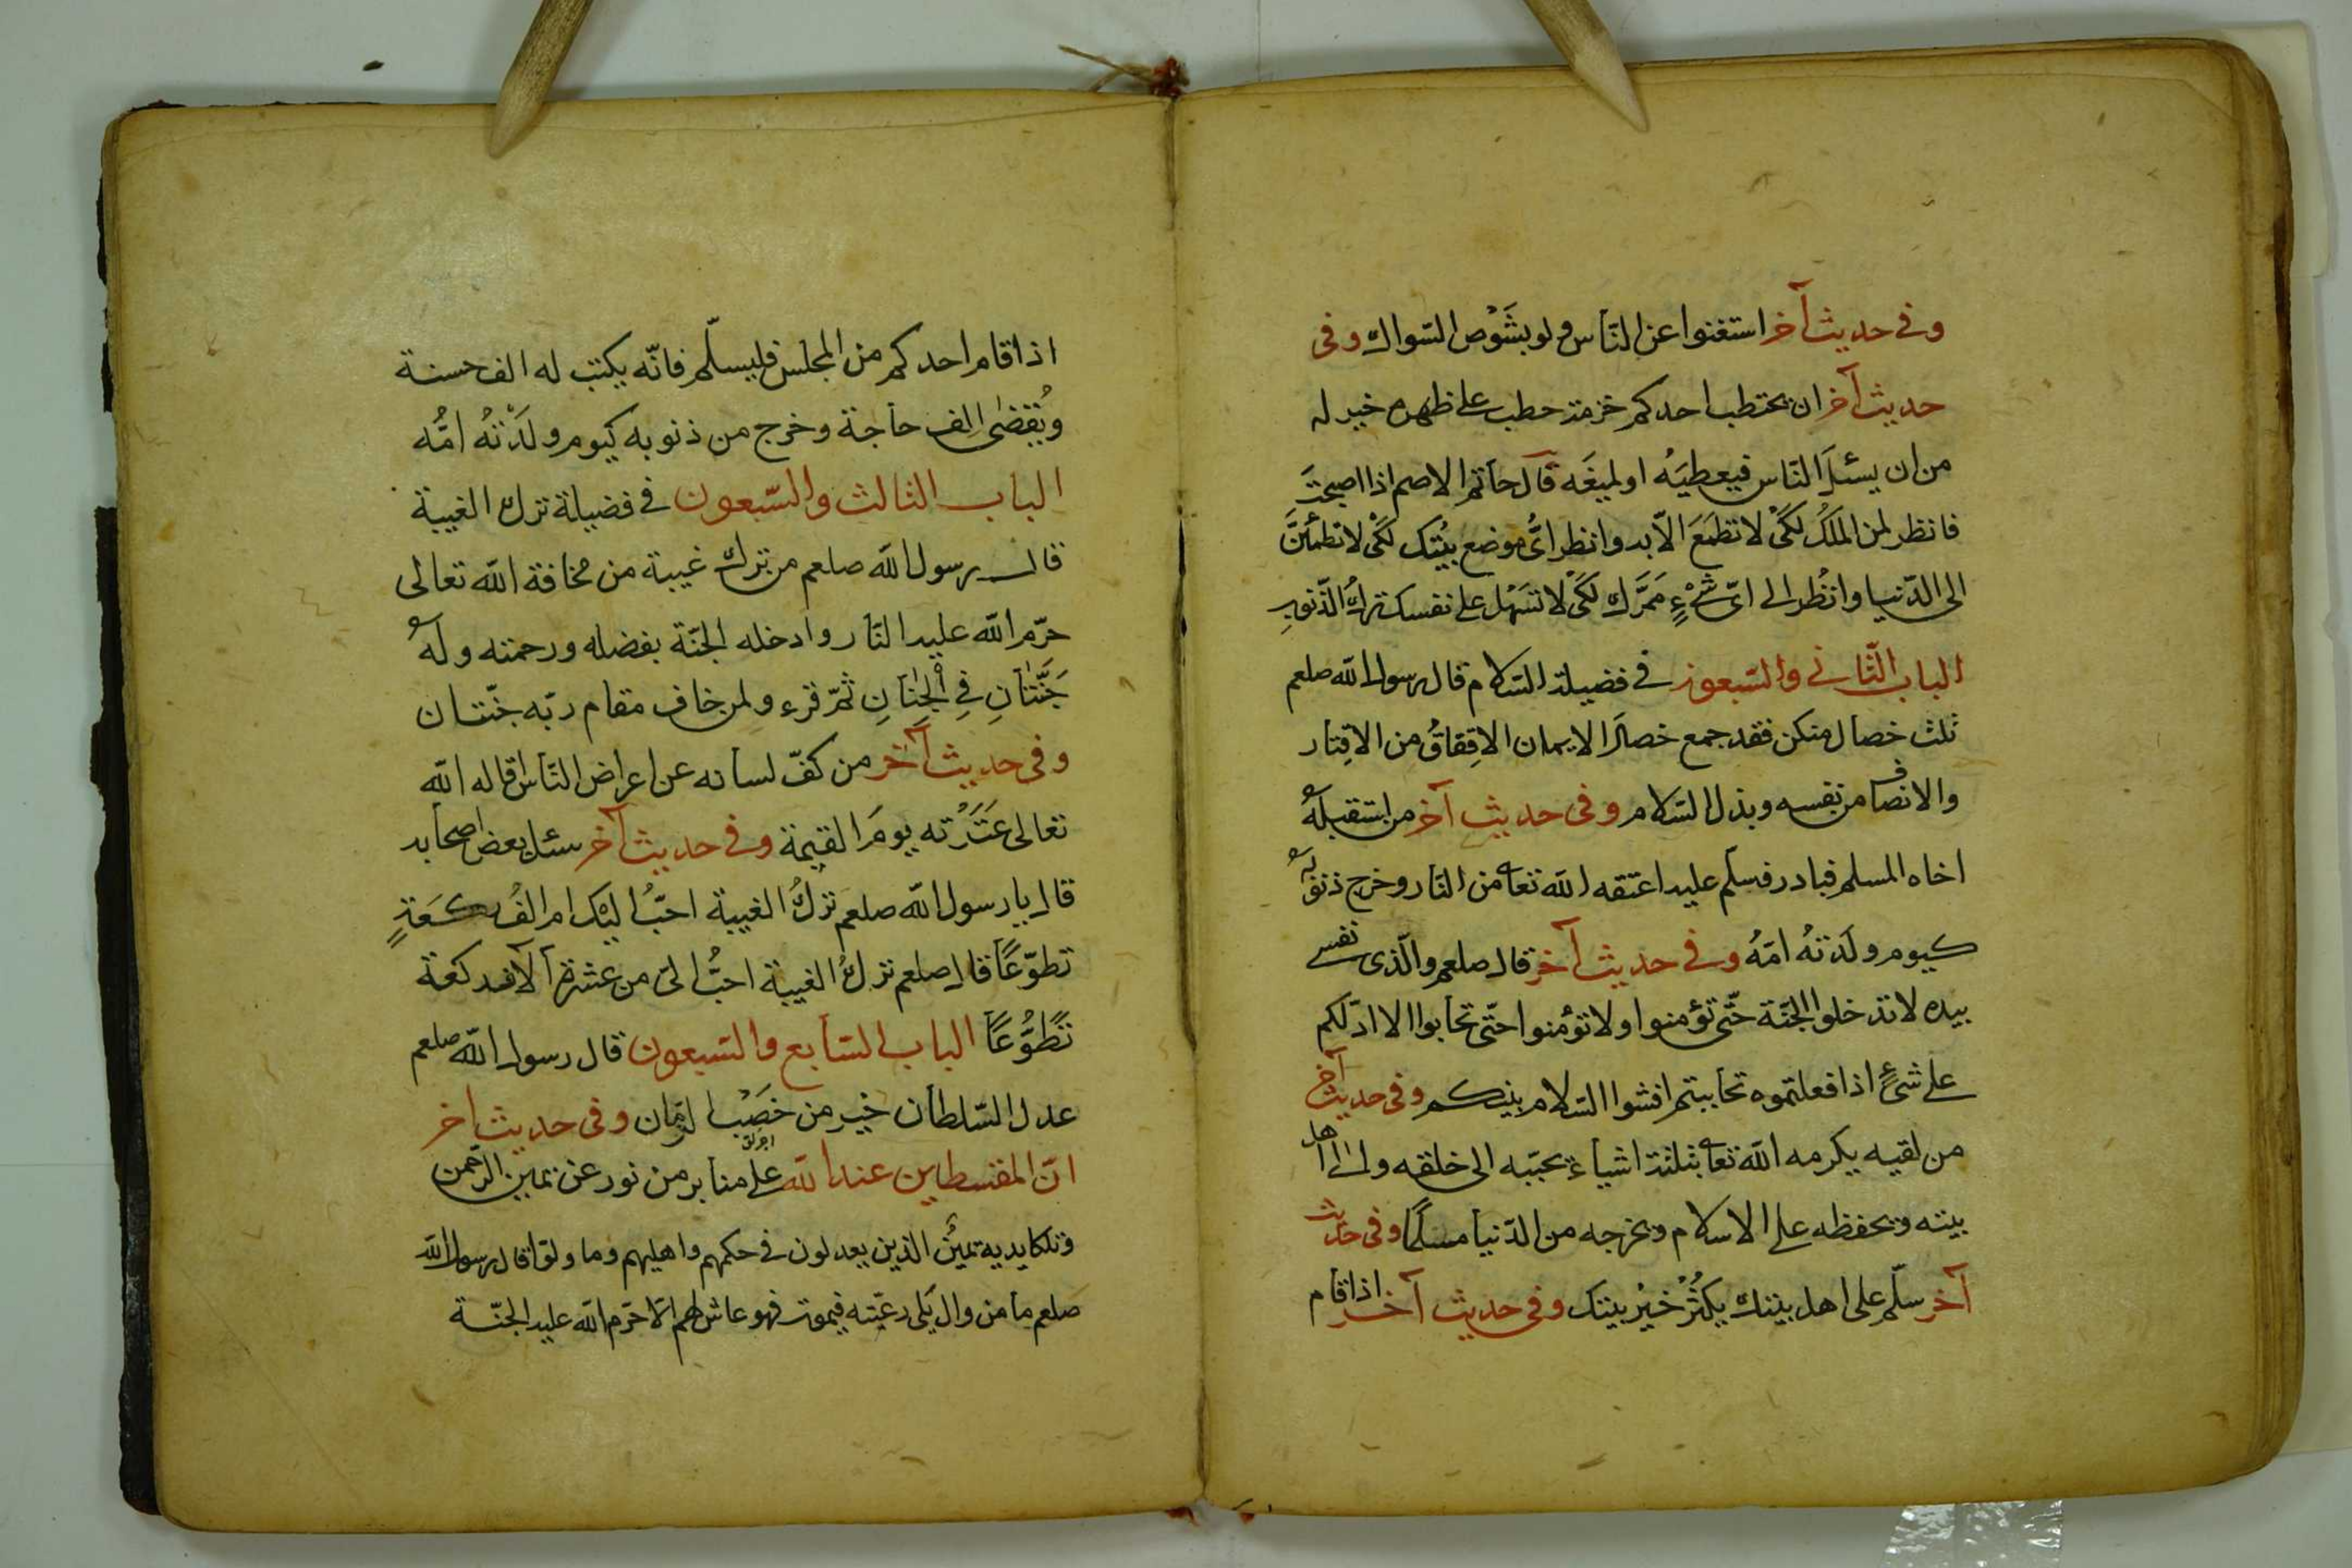 وفى حديث آخر استغنوا عن النّاس ولو بشَوْص السّواك وفى
حديث آخر ان يحتطب احدكم حزمة حطب على ظهره خير له
من ان يسئلَ النّاس فيعطيَهُ او لميغَه قال حاتم الاصم اذا اصبحتَ
فانظر لمن المَلَكُ لكَىْ لا تطمَعَ الاّ بد وانظر اىُّ موضع بيْتك لكَىْ لا تطمئنَّ
الى الدّنيا وانظُر الى اىّ شَىْءٍ مَمَرَّك لكَىْ لا تسَهْل على نفسك ترك الذّنوب
الباب الثّانى والسّبعون فى فضيلة السّلام قال رسول الله صلعم
ثلث خصال منكن فقد جمع خصالَ الايمان الاِفقاقُ من الاقِتار
والانصاف من نفسه وبذل السّلام وفى حديث آخر من استقبله
اخاه المسلم فبادر فسلّم عليه اعتقه الله تعا من النّار وخرج ذنوبه
كيوم ولدَتهُ امّهُ وفى حديث آخر قال صلعم والّذى نفسى
بيده لا تدخلوا الجنّة حتّى تؤمنوا ولا تؤمنوا حتّى تحابوا الا ادلّكم
على شىءٍ اذا فعلتموه تحاببتم افشوا السّلام بينكم وفى حديث آخر
من لقيه يكرمه الله تعا بثلثة اشياء يحبّبه الى خلقه والى اهل
بيته ويحفظه على الاسلام ويخرجه من الدّنيا مسلمًا وفى حديث
آخر سلّم على اهل بيتك يكثُرْ خَيْر بيتك وفى حديث آخر اذا قام
اذا قام احدكم من المجلس فليسلّم فانّه يكتب له الف حسنة
ويُقضى الف حاجة وخرج من ذنوبه كيوم ولَدَتْهُ امُّه
الباب الثالث والسّبعون فى فضيلة ترك الغيبة
قال رسول الله صلعم من ترك غيبة من مخافة الله تعالى
حرّم الله عليه النّار وادخله الجنّة بفضله ورحمته وله
جَنَّتانِ فِى الْجِنانِ ثمّ قرء ولمن خاف مقام ربّه جنّتان
وفى حديث آخر من كفّ لسانه عن اعراض النّاس اقاله الله
تعالى عَثَرَته يومَ القيمة وفى حديث آخر سئل بعض اصحابه
قال يا رسول الله صلعم تركُ الغيبة احبُّ اليْك ام الفُ ركعَةٍ
تطوّعًا قال صلعم تركُ الغيبة احبُّ الىّ من عشرة آلاف ركعة
تَطوُّعًا الباب السّابع والسّبعون قال رسول الله صلعم
عدل السّلطان خير من خصَب الزّمان وفى حديث اخر
انّ المقسطين عند الله على منابر من نور عن يمين الرّحمن
وكلتا يديه يمينُ الذين يعدلون فى حكمهم واهليهم وما ولّوا قال رسول الله
صلعم ما من وال يَلى رعيّته فيموت فهو غاش لهم الاّ حرّم الله عليه الجنّة